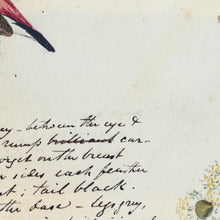 ey - between the eye &
rump brilliant car-
on the breast
sides each feather
t; tail black.
the base - legs grey,